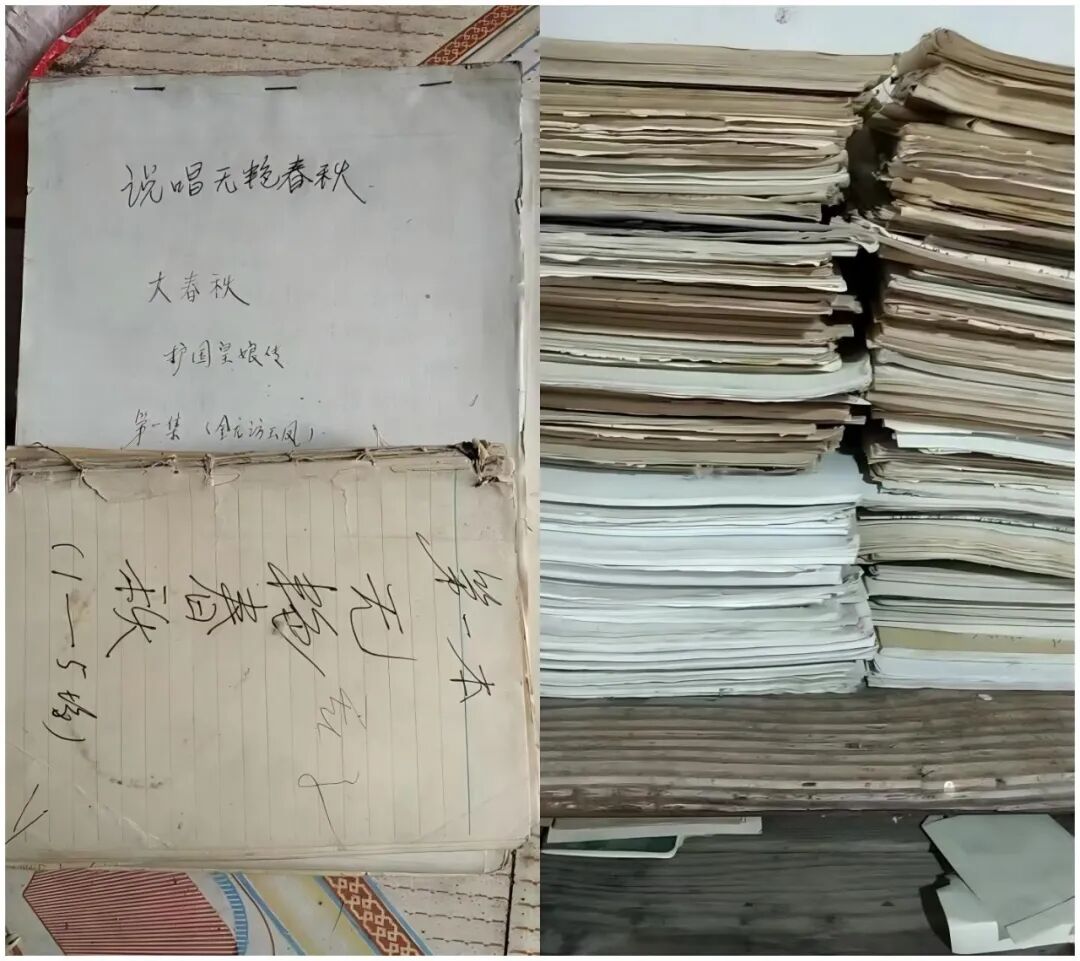 说唱无艳春秋
大春秋
护国皇娘传
第一集（金元访云凤）
第一本
无艳春秋
（1—5场）